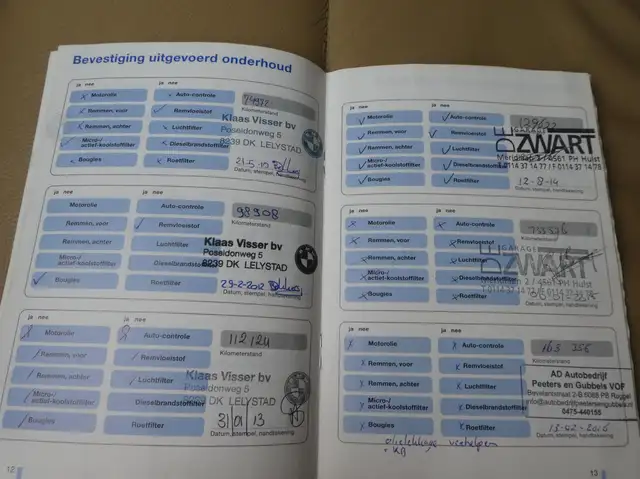 Bevestiging uitgevoerd onderhoud
ja nee ja nee
Motorolie Auto-controle
Remmen, voor Remvloeistof
Kilometerstand
Remmen, achter Luchtfilter
Klaas Visser bv
Poseidonweg 5
8239 DK LELYSTAD
Micro-/ actief-koolstoffilter Dieselbrandstoffilter
Bougies Roetfilter
Datum, stempel, handtekening
ja nee ja nee
98908
Motorolie Auto-controle
Kilometerstand
Remmen, voor Remvloeistof
Remmen, achter Luchtfilter
Klaas Visser bv
Poseidonweg 5
8239 DK LELYSTAD
Micro-/ actief-koolstoffilter Dieselbrandstoffilter
Bougies Roetfilter
29-2-2012
Datum, stempel, handtekening
ja nee ja nee
112124
Motorolie Auto-controle
Kilometerstand
Remmen, voor Remvloeistof
Remmen, achter Luchtfilter
Klaas Visser bv
Poseidonweg 5
DK LELYSTAD
Micro-/ actief-koolstoffilter Dieselbrandstoffilter
31 01 13
Bougies Roetfilter
Datum, stempel, handtekening
12
ja nee ja nee
Motorolie Auto-controle
Remmen, voor Remvloeistof
GARAGE
DE ZWART
Remmen, achter Luchtfilter
4561 PH Hulst
T 0114 37 14 77 / F 0114 37 14 78
Micro-/ actief-koolstoffilter Dieselbrandstoffilter
Bougies Roetfilter
12-8-14
Datum, stempel, handtekening
ja nee ja nee
Motorolie Auto-controle
Remmen, voor Remvloeistof
GARAGE
DE ZWART
Remmen, achter Luchtfilter
4561 PH Hulst
Micro-/ actief-koolstoffilter Dieselbrandstoffilter
Bougies Roetfilter
ja nee ja nee
163 356
Motorolie Auto-controle
Kilometerstand
Remmen, voor Remvloeistof
AD Autobedrijf
Peeters en Gubbels VOF
Remmen, achter Luchtfilter
0475-440155
Micro-/ actief-koolstoffilter Dieselbrandstoffilter
Bougies Roetfilter
15-02-2016
Datum, stempel, handtekening
verhelpen
13